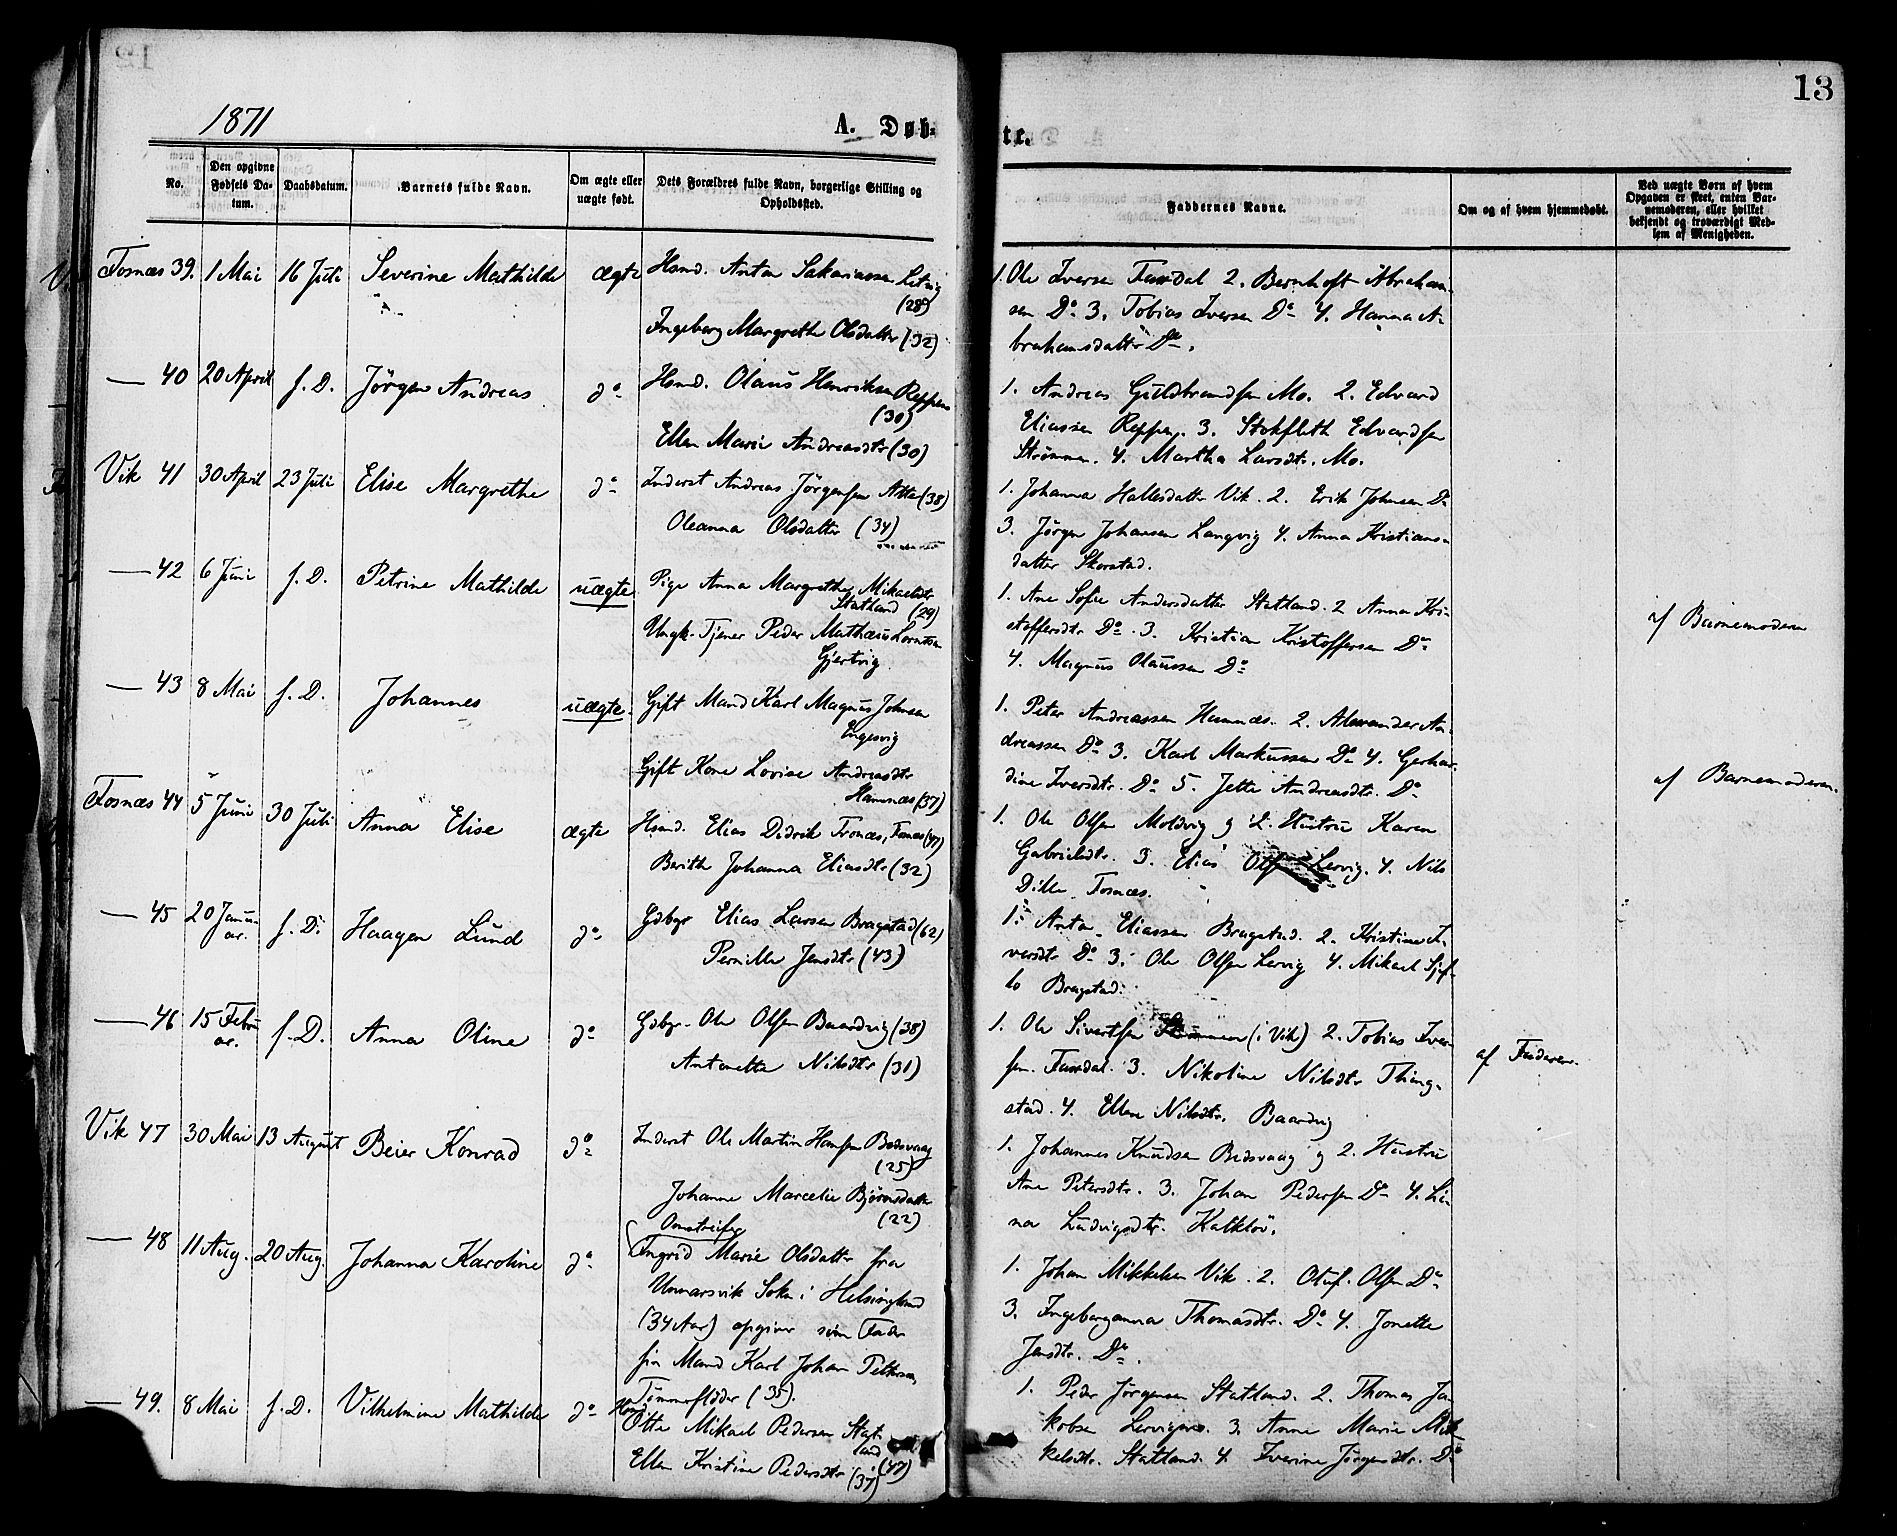 1871
A. Døb-
te.
13
No.
Den opgivne Fødsels Da-tum.
Daabsdatum.
Barnets fulde Navn.
Om ægte eller uægte født.
Dets Forældres fulde Navn, borgerlige Stilling og Opholdssted.
Faddernes Navne.
Om og af hvem hjemmedøbt.
Ved uægte Børn af hvem Opgaven er skeet, enten Bar-nemoderen, eller hvilket bekjendt og troværdigt Med-lem af Menigheden.
Fosnæs 39. 1 Mai 16 Juli Severine Mathilde ægte Hsmd. Anton Sakariassen
(28)
Ingeborg Margrethe Olsdatter (32)
1. Ole Iversen Faxdal 2. Bernhoft Abraham-
sen Do 3. Tobias Iversen Do 4. Hanna A-
brahamsdatter Do.
40 20 April s. D. Jörgen Andreas do Hsmd. Olaus Henriksen Reppen
(30)
Ellen Marie Andreasdtr (30)
1. Andreas Guldbrandsen Mo. 2. Edvard
Eliassen Reppen. 3. Stokfleth Edvardsen
Strömmen. 4. Martha Larsdtr. Mo.
Vik 41 30 April 23 Juli Elise Margrethe do Inderst Andreas Jörgensen (38)
Oleanna Olsdatter (34)
1. Johanna Hallesdatter Vik. 2. Erik Johnsen Do
3. Jörgen Johansen Langvig 4. Anna Kristians-
datter Skorstad.
42 6 Juni s. D. Petrine Mathilde uægte Pige Anna Margrethe Mikaelsdtr
Statland (29)
Ungk. Tjener Peder Mathæus Lorntsen
Gjertvig.
1. Ane Sofie Andersdatter Statland. 2 Anna Kri-
stoffersdtr Do. 3. Kristian Kristoffersen Do
4. Magnus Olaussen Do
af Barnemoderen
43 8 Mai s. D. Johannes uægte. Gift Mand Karl Magnus Johnsen
Engesvig
Gift Kone Lovise Andreasdtr
Hamnæs (37)
1. Peter Andreassen Hamnæs. 2. Alexander An-
dreassen Do 3. Karl Markussen Do 4. Gerhar-
dine Iversdtr. Do 5. Jette Andreasdtr. Do
af Barnemoderen.
Fosnæs 44 5 Juni 30 Juli Anna Elise ægte Hsmd. Elias Didrik Fosnæs (47)
Berith Johanna Eliasdtr (32)
1. Ole Olsen Moldvig g 2. Hustru Karen
Gabrielsdtr. 3. Elias Olsen Lervig. 4. Nils
Fosnæs.
45 20 Janu-
ar. s. D. Haagen Lund do Gdbgr Elias Larsen Bragstad (62)
Pernille Jensdtr (43)
1. Anton Eliassen Bragstad. 2. Kristine I-
versdtr Do 3. Ole Olsen Lervig 4. Mikael
Bragstad.
46 15 Febru-
ar. s. D. Anna Oline do Gdbgr. Ole Olsen Baardvig (38)
Antonette Nilsdtr (31)
1. Ole Sivertsen Strömmen (i Vik) 2. Tobias Iver-
sen Faxdal. 3. Nikoline Nilsdtr Thing-
stad. 4. Ellen Nilsdtr. Baardvig
af Faderen.
Vik 47 30 Mai 13 August Beier Konrad do Inderst Ole Martin Hansen Bedsvaag
(25)
Johanne Marcelie Björnsdatter
(22)
1. Johannes Knudsen Bedsvaag g 2. Hustru
Ane Petersdtr. 3. Johan Pedersen Do 4. Li-
na Ludvigsdtr. Kalklöv.
48 11 Aug. 20 Aug. Johanna Karoline do Omstreifer
Ingrid Marie Olsdatter fra
Unnarsvik Sokn i Helsingland
(34 Aar) opgiver som Fader
sin Mand Karl Johan Petterson,
Tömmerflöder (35).
1. Johan Mikkelsen Vik. 2. Oluf Olsen Do
3. Ingeborganna Thomasdtr. Do 4. Jonette
Jensdtr. Do.
49. 8 Mai s. D. Vilhelmine Mathilde do
Otto Mikael Pedersen Stat-
land (47)
Ellen Kristine Pedersdtr (37)
1. Peder Jörgensen Statland. 2. Thomas Ja-
kobsen 3. Anne Marie Mik-
kelsdtr. Statland 4. Iverine Jörgensdtr. Do